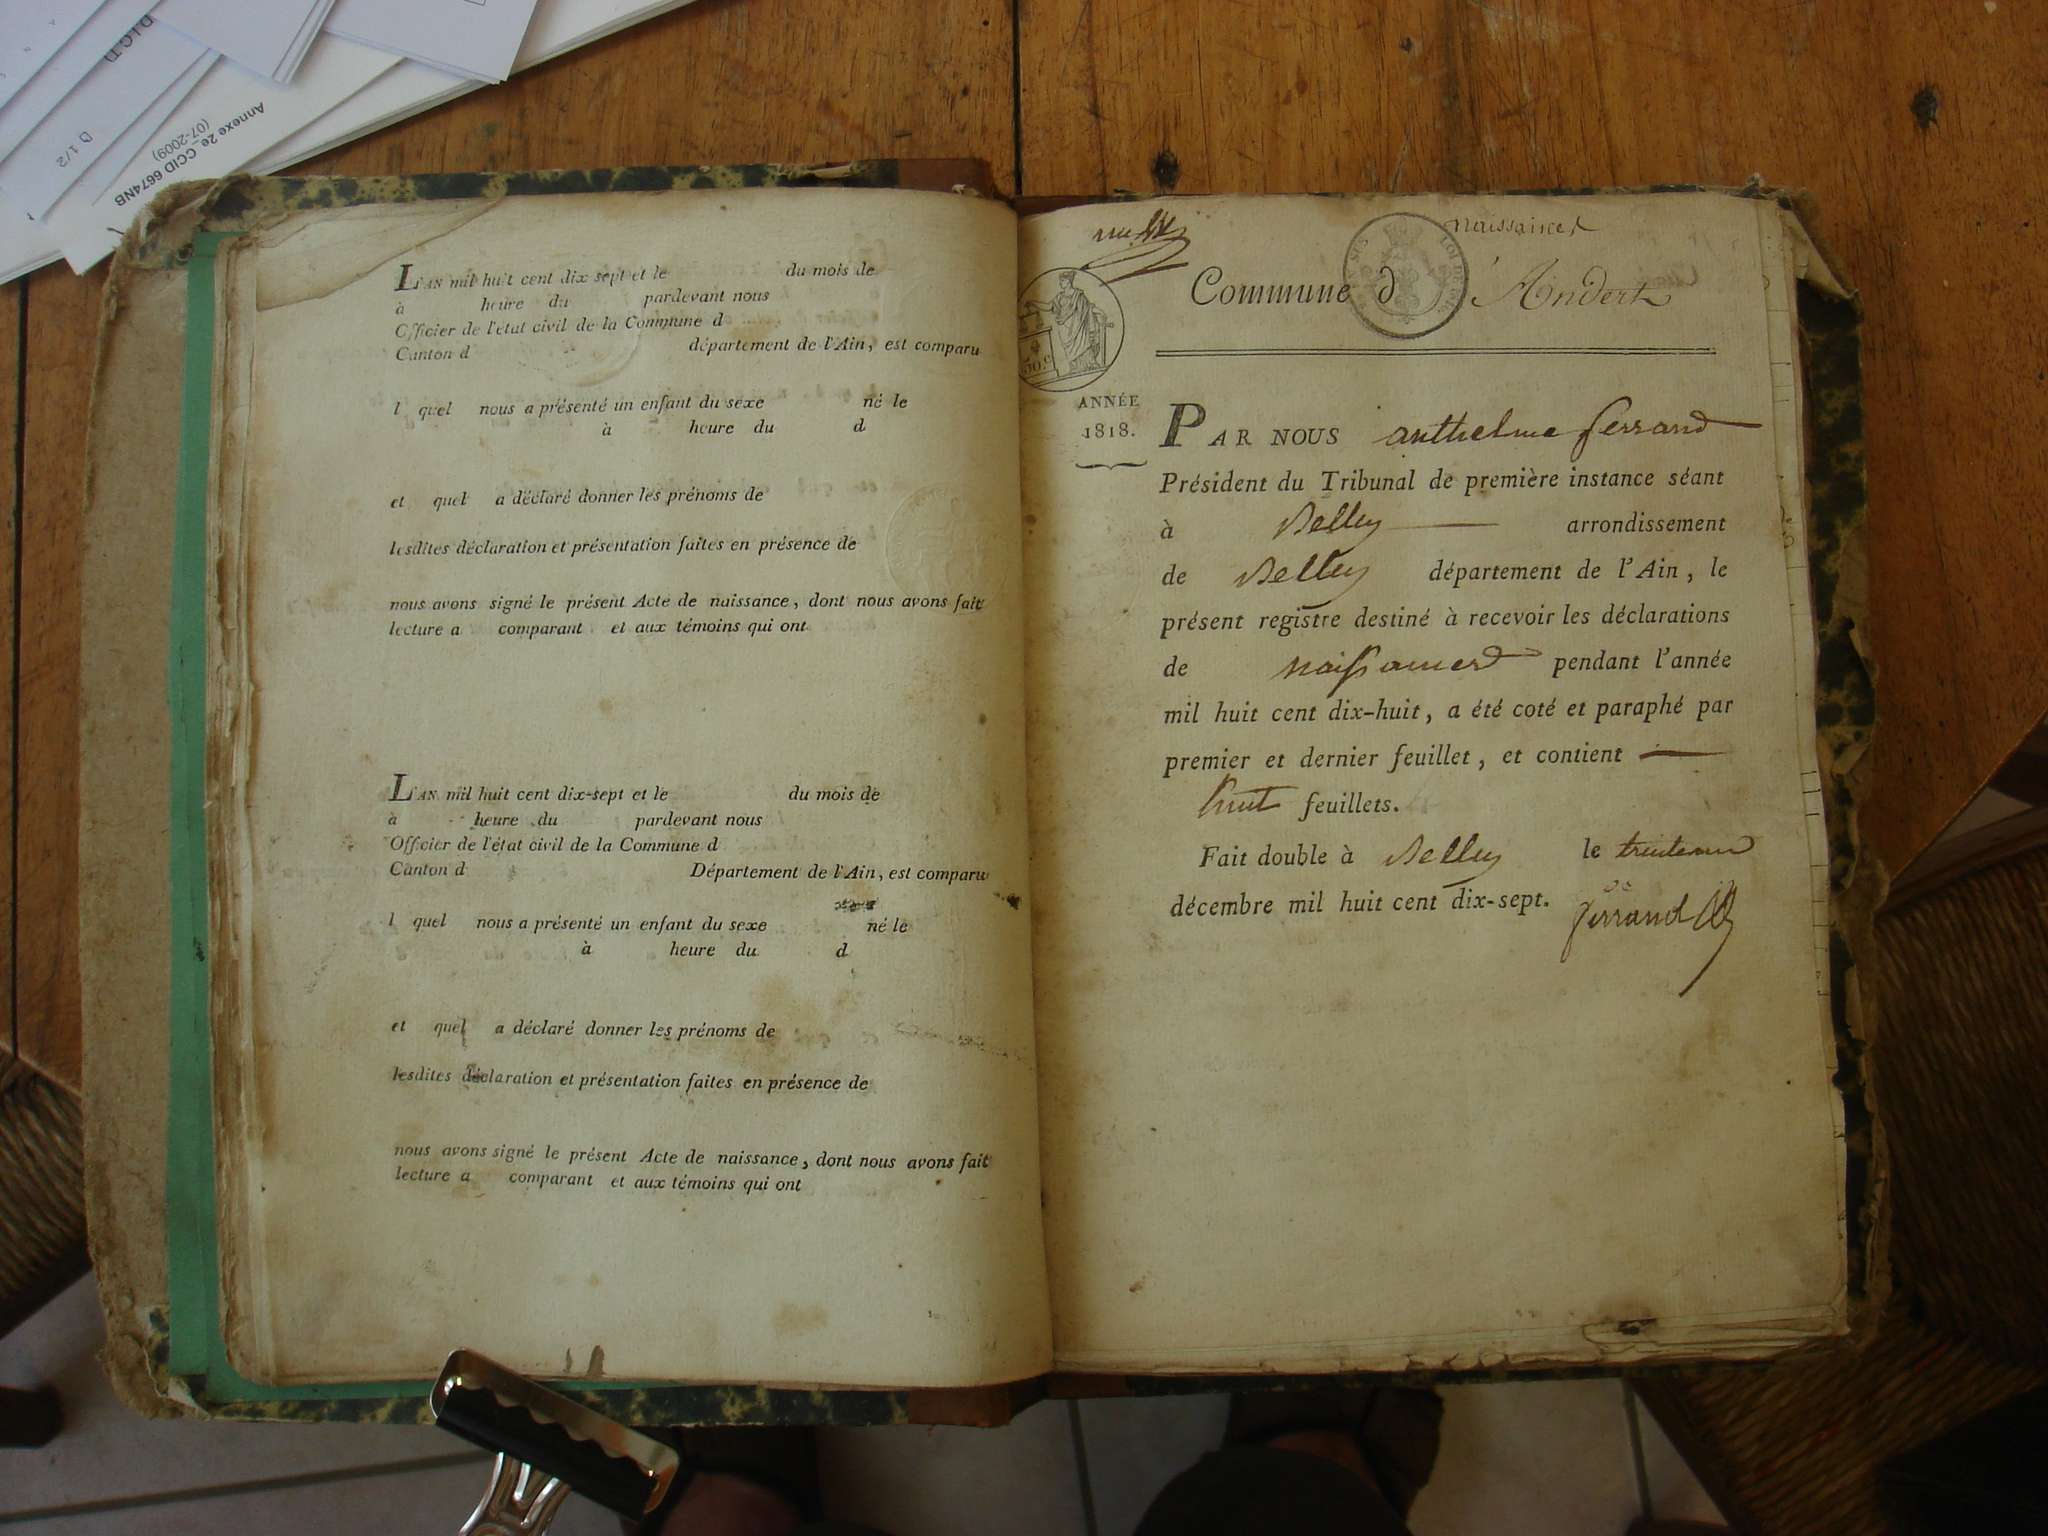 D.I.C.T.D
D 1/2
Annexe 2e_ CCID 6674NB
(07-2009)
L'AN mil huit cent dix sept et le du mois de
à heure du pardevant nous
Officier de l'état civil de la Commune d
Canton d département de l'Ain, est comparu
l quel nous a présenté un enfant du sexe né le
à heure du d
et quel a déclaré donner les prénoms de
lesdites déclaration et présentation faites en présence de
nous avons signé le présent Acte de naissance, dont nous avons fait
lecture a comparant et aux témoins qui ont
L'AN mil huit cent dix-sept et le du mois de
à heure du pardevant nous
Officier de l'état civil de la Commune d
Canton d Département de l'Ain, est comparu
l quel nous a présenté un enfant du sexe né le
à heure du d
et quel a déclaré donner les prénoms de
lesdites déclaration et présentation faites en présence de
nous avons signé le présent Acte de naissance, dont nous avons fait
lecture a comparant et aux témoins qui ont
naissances
Commune d'Andert
50.c
ANNÉE
1818.
PAR NOUS anthelme ferrand
Président du Tribunal de première instance séant
à Belley arrondissement
de Belley département de l'Ain, le
présent registre destiné à recevoir les déclarations
de naissances pendant l'année
mil huit cent dix-huit, a été coté et paraphé par
premier et dernier feuillet, et contient
huit feuillets.
Fait double à Belley le trente un
décembre mil huit cent dix-sept.
ferrand